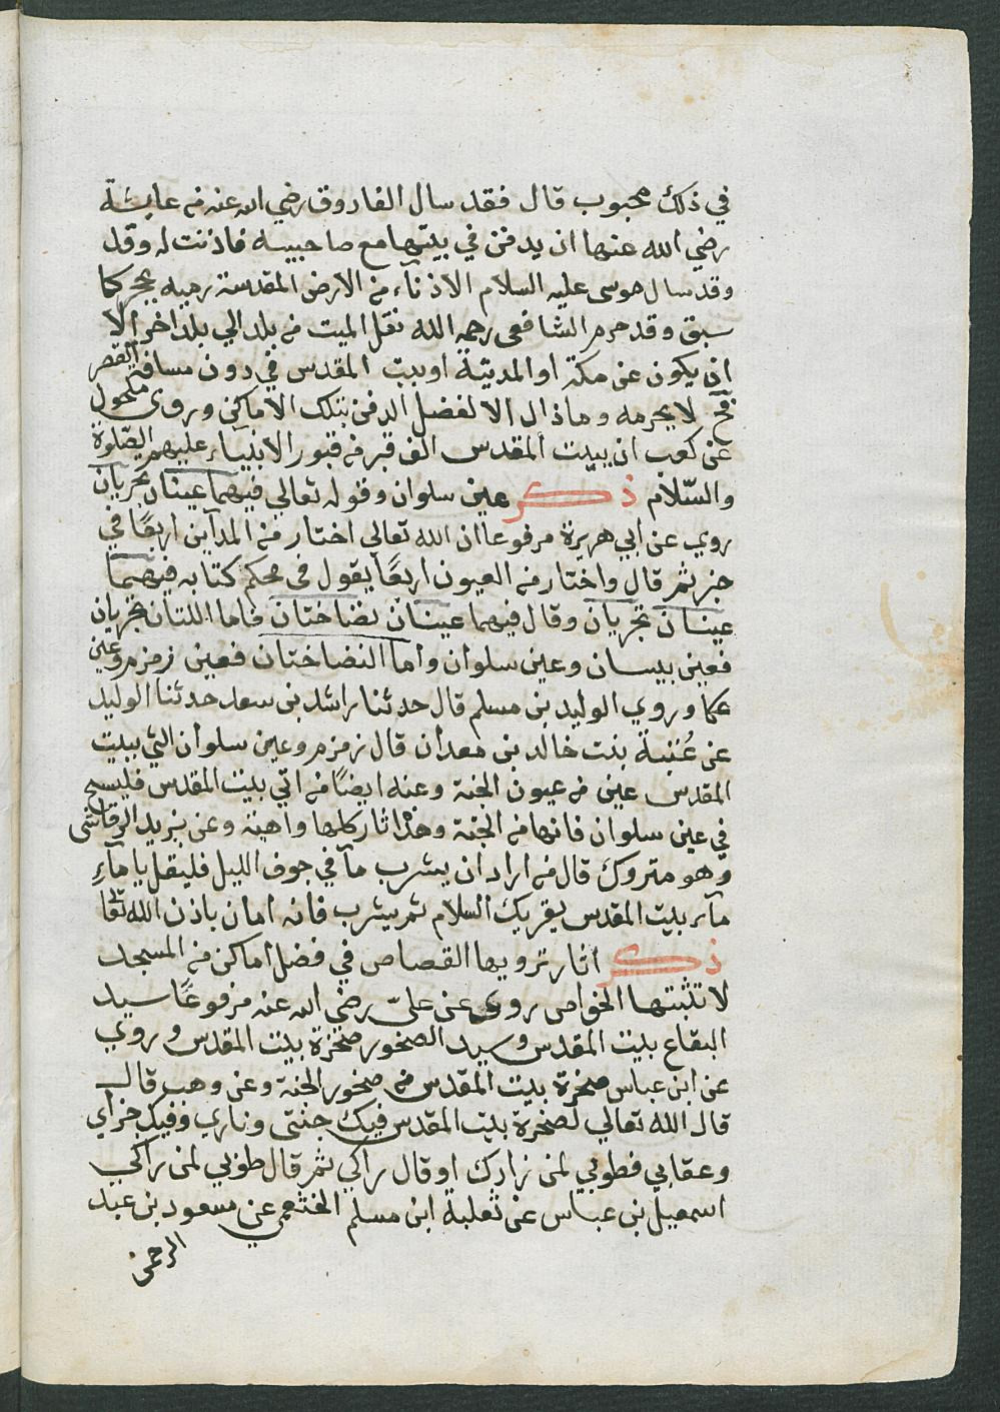 في ذلك محبوب قال فقد سال الفاروق رضي الله عنه من عايشة
رضي الله عنها ان يدفن في بيتها مع صاحبيه فاذنت له وقد
وقد سال موسى عليه السلام الادناء من الارض المقدسة رميه بحجر كما
سبق وقد حرم الشافعى رحمه الله نقل الميت من بلد الي بلد اخر الا
ان يكون عن مكة او المدينة او بيت المقدس في دون مسافة القصر
فح لا يحرمه وماذال الا لفضل الدفن بتلك الاماكن وروى مكحول
عن كعب ان ببيت المقدس الف قبر من قبور الانبياء عليهم الصّلوة
والسّلام ذكر عين سلوان وقوله تعالي فيهما عينان تجريان
روي عن ابي هريرة مرفوعا ان الله تعالي اختار من المدآين اربعًا في
خبر ثم قال واختار من العيون اربعًا يقول في محكم كتابه فيهما
عينان تجريان وقال فيهما عينان نضاختان فاما اللتان تجريان
فعين بيسان وعين سلوان واما النضاختان فعين زمزم وعين
عكا وروي الوليد بن مسلم قال حدثنا راشد بن سعد حدثنا الوليد
عن عُنبة بنت خالد بن معدان قال زمزم وعين سلوان التي ببيت
المقدس عين من عيون الجنة وعنه ايضًا من اتي بيت المقدس فليسبح
في عين سلوان فانها من الجنة وهذ اثار كلها واهية وعن يزيد الرقاشى
وهو متروك قال من اراد ان يشرب مآ في جوف الليل فليقل يا مآءِ
مآء بيت المقدس يقريك السلام ثم يشرب فانه امان باذن الله تعا
ذكر اثار ترويها القصاص في فضل اماكن من المسجد
لا تثبتها الخواص روى عن عليّ رضي الله عنه مرفوعًا سيد
البقاع بيت المقدس وسيد الصخور صخرة بيت المقدس وروي
عن ابن عباس صخرة بيت المقدس من صخور الجنة وعن وهب قال
قال الله تعالي لصخرة بيت المقدس فيك جنتي وناري وفيك جزاي
وعقابي فطوبي لمن زارك او قال راكي ثم قال طوبي لمن راكي
اسمعيل بن عباس عن ثعلبة ابن مسلم الخثعمي عن مسعود بن عبد
الرحمن